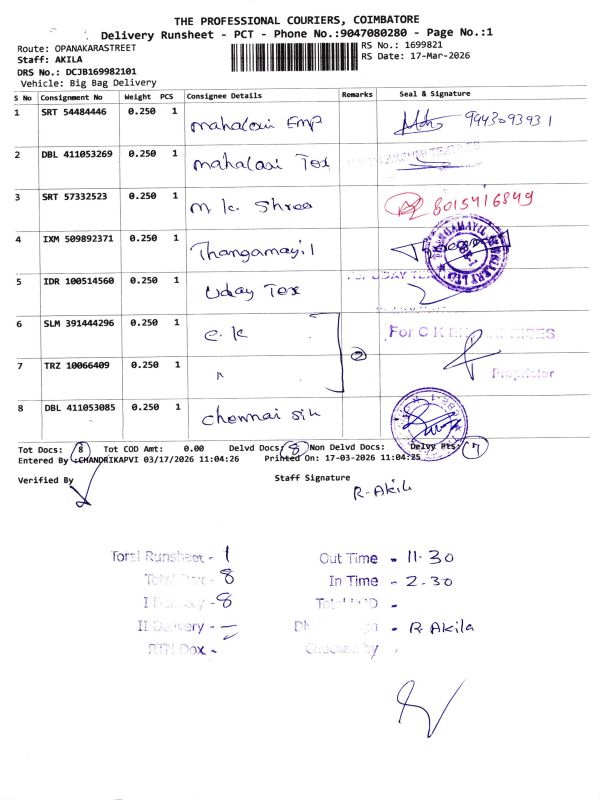 THE PROFESSIONAL COURIERS, COIMBATORE
Delivery Runsheet - PCT - Phone No.:9047080280 - Page No.:1
Route: OPANAKARASTREET
RS No.: 1699821
Staff: AKILA
RS Date: 17-Mar-2026
DRS No.: DCJB169982101
Vehicle: Big Bag Delivery
S No Consignment No Weight PCS Consignee Details Remarks Seal & Signature
1 SRT 54484446 0.250 1 mahalaxi Emp 9443093931
2 DBL 411053269 0.250 1 mahalaxi Tex
3 SRT 57332523 0.250 1 m. k. Shree 8015416849
4 IXM 509892371 0.250 1 Thangamayil
5 IDR 100514560 0.250 1 Uday Tex
6 SLM 391444296 0.250 1 C. K For C K
2
7 TRZ 10066409 0.250 1 "
Proprietor
8 DBL 411053085 0.250 1 Chennai Silk
Tot Docs: 8 Tot COD Amt: 0.00 Delvd Docs: 8 Non Delvd Docs: Delvy Pts: 7
Entered By :CHANDRIKAPVI 03/17/2026 11:04:26 Printed On: 17-03-2026 11:04:25
Verified By
Staff Signature
R. Akila
Total Runsheet - 1
Out Time - 11.30
Total Dox - 8
In Time - 2.30
I Delivery - 8
Total COD -
II Delivery - -
- R. Akila
RTN Dox -
Checked by